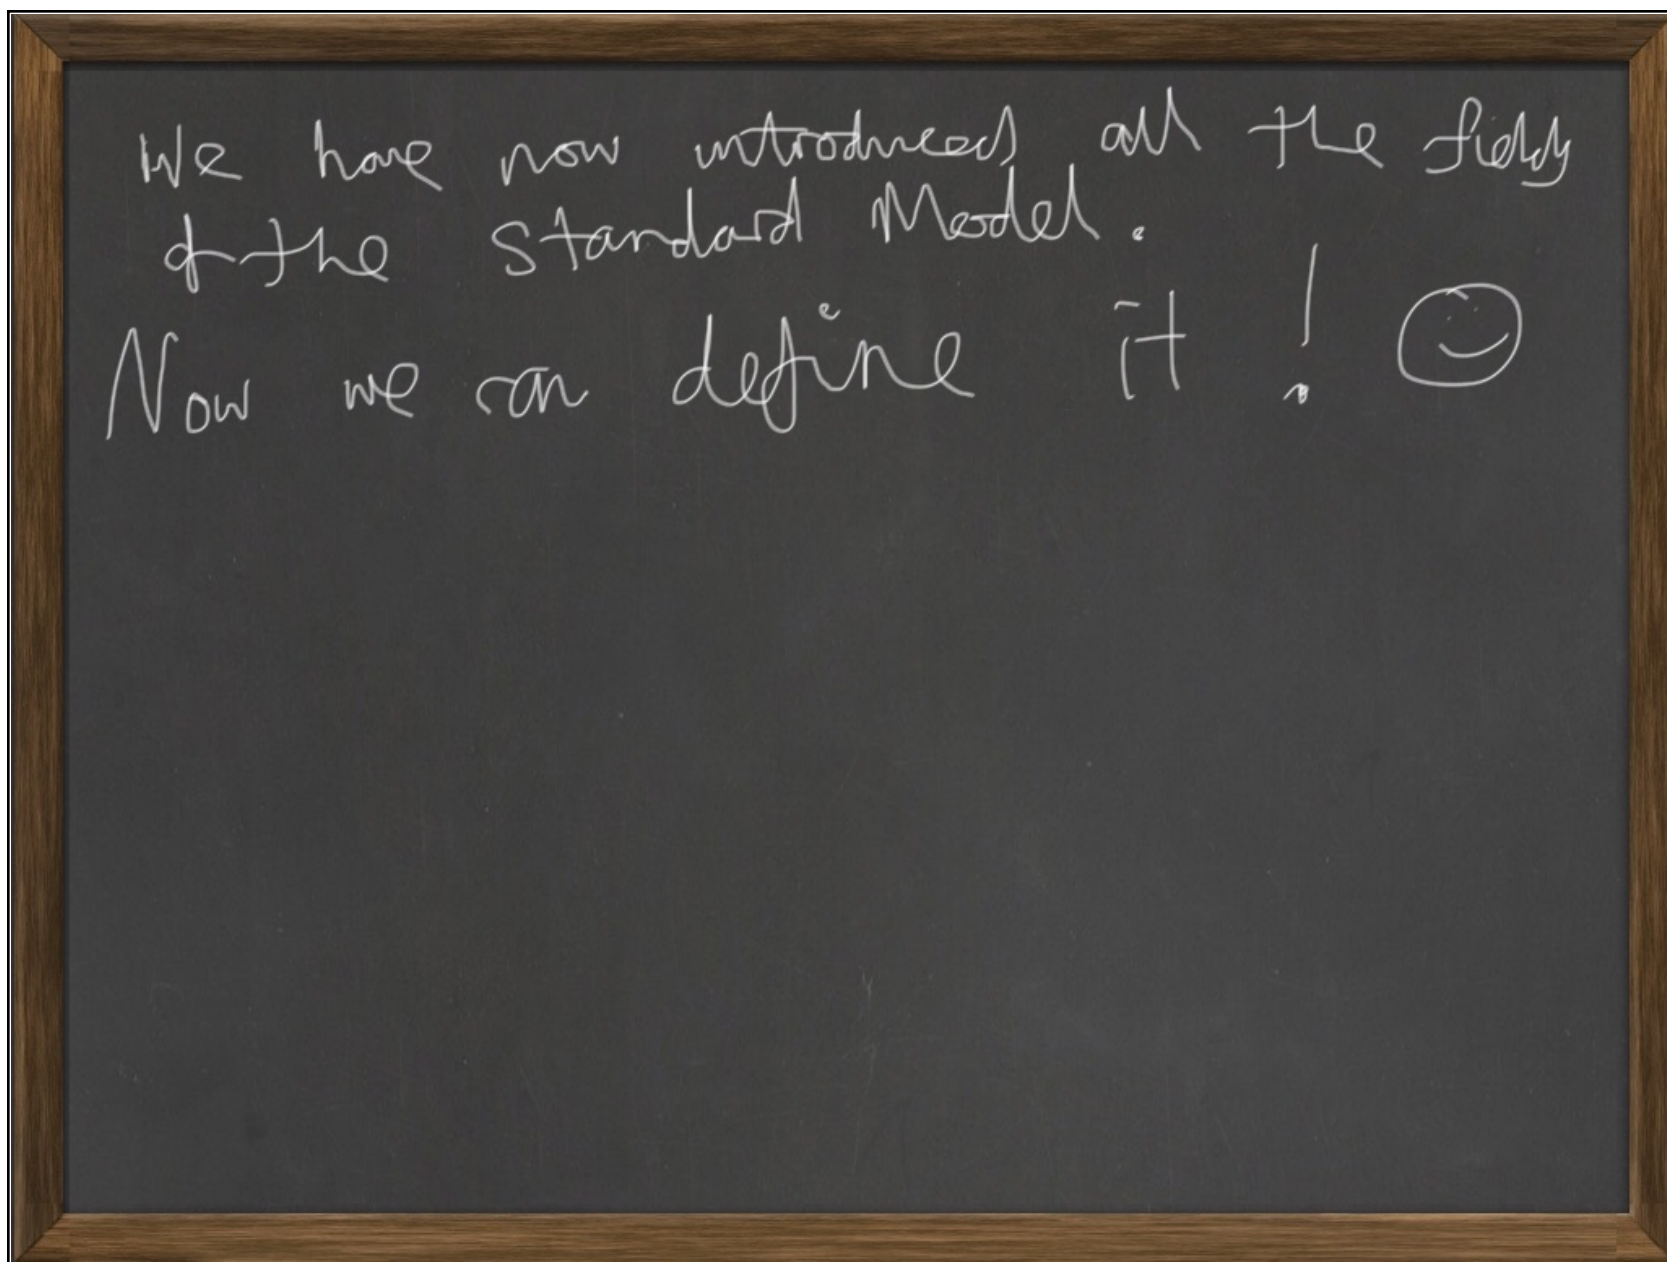 We have now introduced all the fields
of the Standard Model.
Now we can define it!